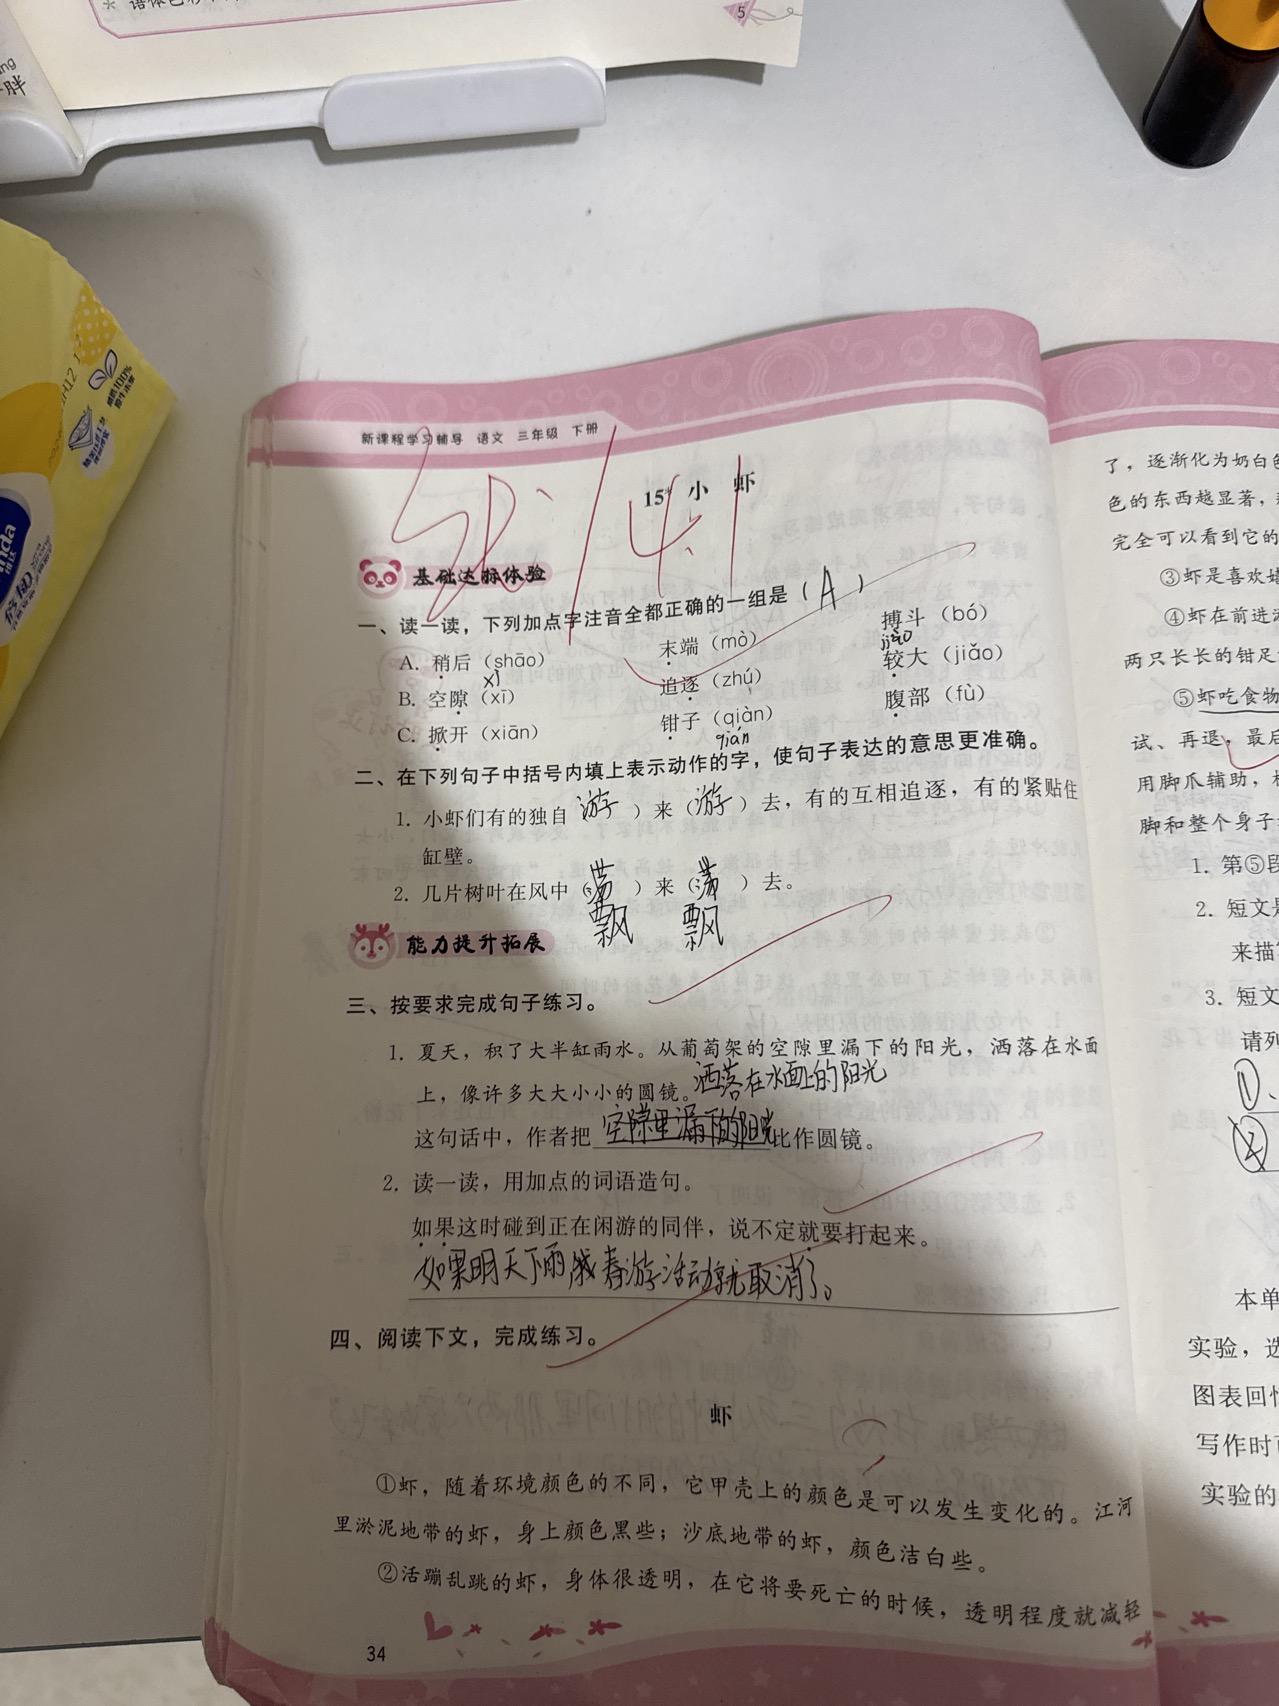 5
胖
新课程学习辅导 语文 三年级 下册
15* 小 虾
基础达标体验
一、读一读，下列加点字注音全都正确的一组是（A）
A. 稍后（shāo） 末端（mò） 搏斗（bó）
xì jiào
B. 空隙（xī） 追逐（zhú） 较大（jiǎo）
C. 掀开（xiān） 钳子（qiàn） 腹部（fù）
qián
二、在下列句子中括号内填上表示动作的字，使句子表达的意思更准确。
1. 小虾们有的独自 游 ）来（游 ）去，有的互相追逐，有的紧贴住
缸壁。
2. 几片树叶在风中（荡 ）来（荡 ）去。
飘 飘
能力提升拓展
三、按要求完成句子练习。
1. 夏天，积了大半缸雨水。从葡萄架的空隙里漏下的阳光，洒落在水面
上，像许多大大小小的圆镜。洒落在水面上的阳光
这句话中，作者把 空隙里漏下的阳光 比作圆镜。
2. 读一读，用加点的词语造句。
如果这时碰到正在闲游的同伴，说不定就要打起来。
如果明天下雨 春游活动就取消了。
四、阅读下文，完成练习。
虾
①虾，随着环境颜色的不同，它甲壳上的颜色是可以发生变化的。江河
里淤泥地带的虾，身上颜色黑些；沙底地带的虾，颜色洁白些。
②活蹦乱跳的虾，身体很透明，在它将要死亡的时候，透明程度就减轻
34
了，逐渐化为奶白色
色的东西越显著，
完全可以看到它的
③虾是喜欢
④虾在前进
两只长长的钳足
⑤虾吃食物
试、再退，最后
用脚爪辅助，
脚和整个身子
1. 第⑤段
2. 短文
来描
3. 短文
请列
①、
②
本单
实验，选
图表回
写作时
实验的